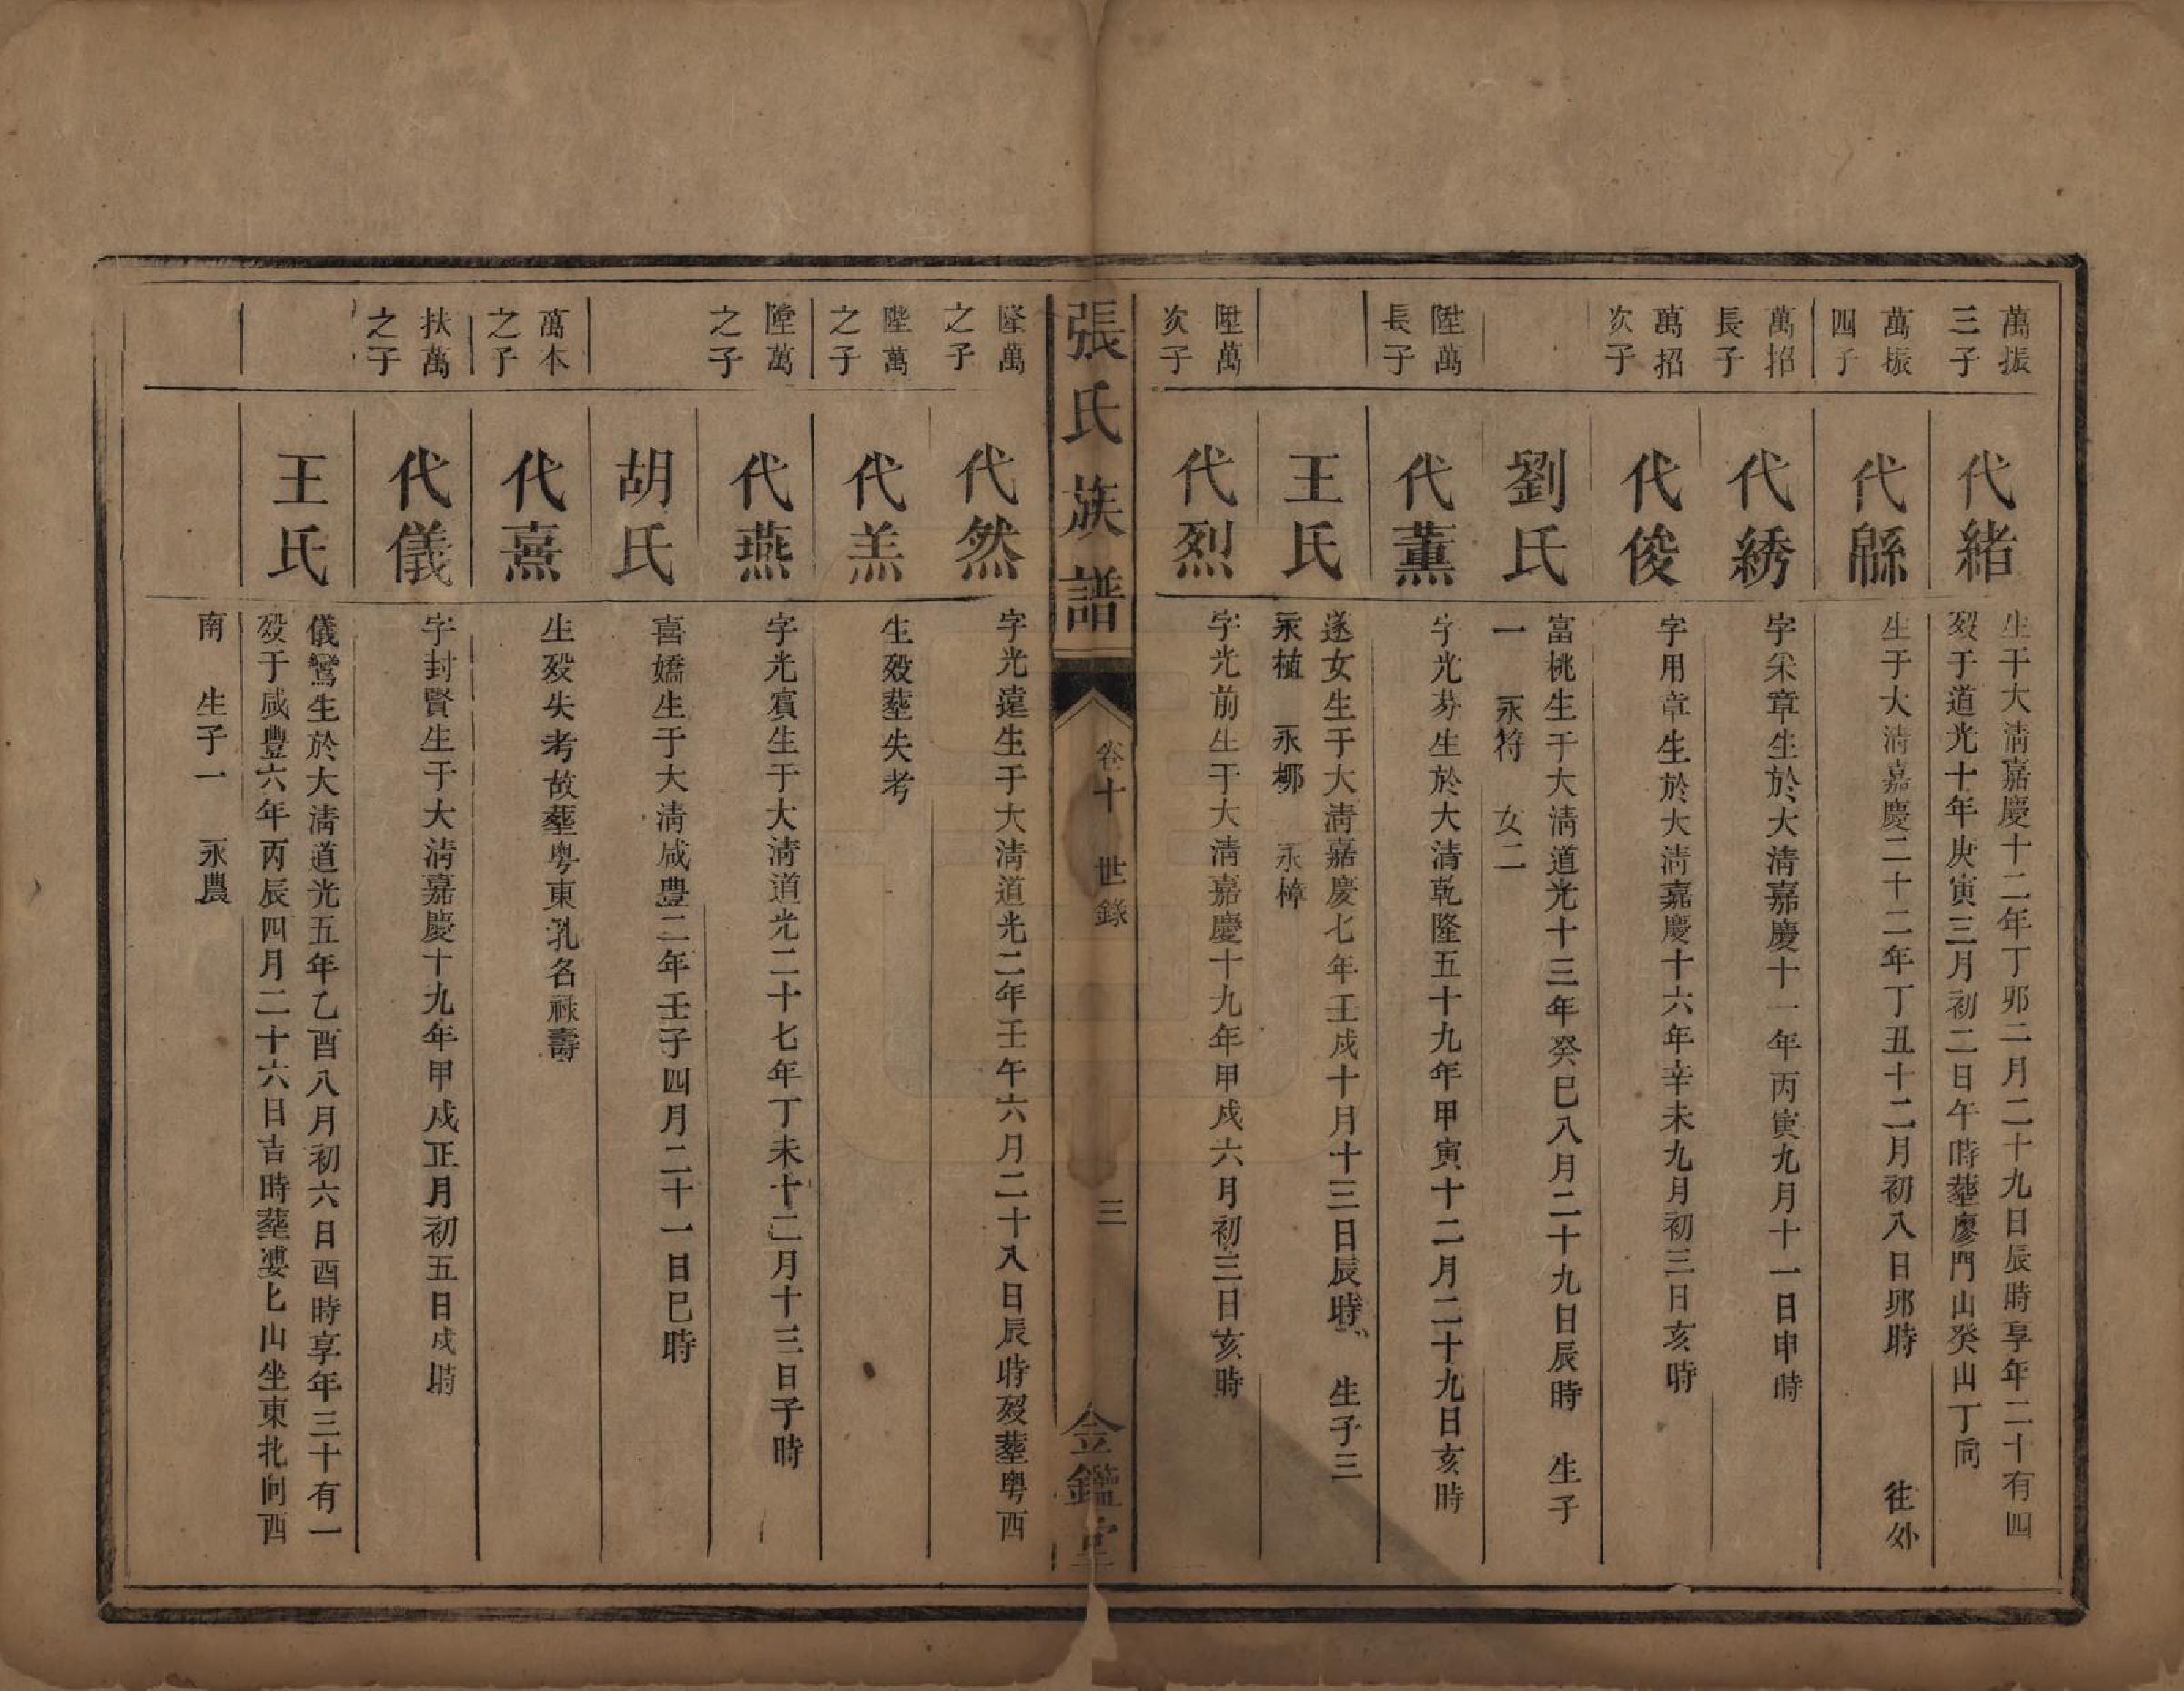 萬振
三子
代緒
生于大淸嘉慶十二年丁夘二月二十九日辰時享年二十有四
歿于道光十年庚寅三月初二日午時塟廖門山癸山丁向
萬振
四子
代緜
生于大淸嘉慶二十二年丁丑十二月初八日夘時 往外
萬招
長子
代綉
字采章生於大淸嘉慶十一年丙寅九月十一日申時
萬招
次子
代俊
字用章生於大淸嘉慶十六年辛未九月初三日亥時
劉氏
富桃生于大淸道光十三年癸巳八月二十九日辰時 生子
一 永符 女二
陞萬
長子
代薰
字光芬生於大清乾隆五十九年甲寅十二月二十九日亥時
王氏
遂女生于大淸嘉慶七年壬戌十月十三日辰時 生子三
永植 永梛 永樟
陞萬
次子
代烈
字光前生于大淸嘉慶十九年甲戌六月初三日亥時
張氏族譜
卷十 世錄
三
金鑑堂
萬
之子
代然
字光遠生于大淸道光二年壬午六月二十八日辰時歿塟粤西
陛萬
之子
代羔
生歿塟失考
陞萬
之子
代燕
字光賔生于大淸道光二十七年丁未十二月十三日子時
胡氏
喜嬌生于大淸咸豐二年壬子四月二十一日巳時
萬木
之子
代熹
生歿失考故塟粤東乳名祿壽
扶萬
之子
代儀
字封賢生于大淸嘉慶十九年甲戌正月初五日戌時
王氏
儀鸞生於大淸道光五年乙酉八月初六日酉時享年三十有一
歿于咸豐六年丙辰四月二十六日吉時塟婁匕山坐東北向西
南 生子一 永農